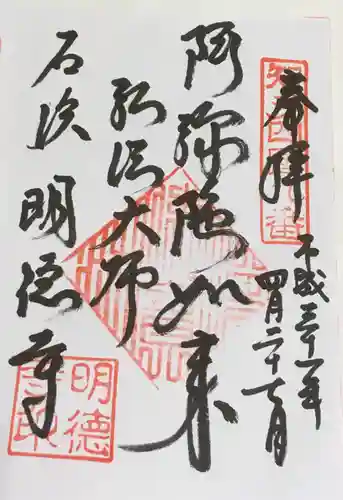 奉拝
平成三十一年
四月二十七日
阿弥陀如来
弘法大師
石浜 明徳寺
明德
寺印